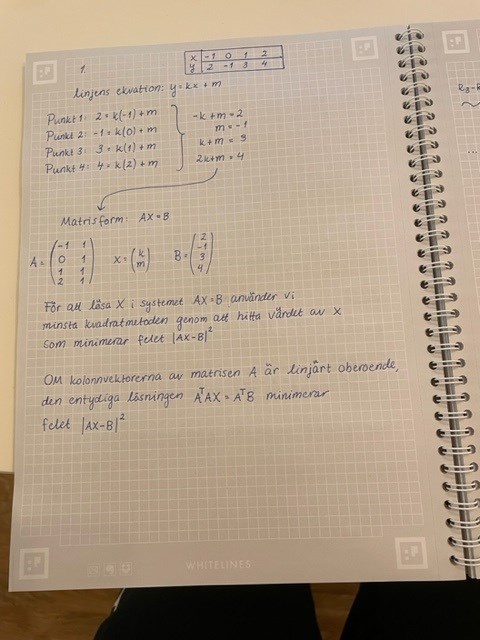 1.
x -1 0 1 2
y 2 -1 3 4
linjens ekvation: y=kx+m
Punkt 1: 2=k(-1)+m
Punkt 2: -1=k(0)+m
Punkt 3: 3=k(1)+m
Punkt 4: 4=k(2)+m
-k+m=2
m=-1
k+m=3
2k+m=4
Matrisform: AX=B
A=(-1 1
0 1
1 1
2 1)
X=(k
m)
B=(2
-1
3
4)
För att lösa X i systemet AX=B använder vi
minsta kvadratmetoden genom att hitta värdet av X
som minimerar felet |AX-B|²
OM kolonnvektorerna av matrisen A är linjärt oberoende,
den entydiga lösningen AᵀAX=AᵀB minimerar
felet |AX-B|²
WHITELINES
R₃-R
...